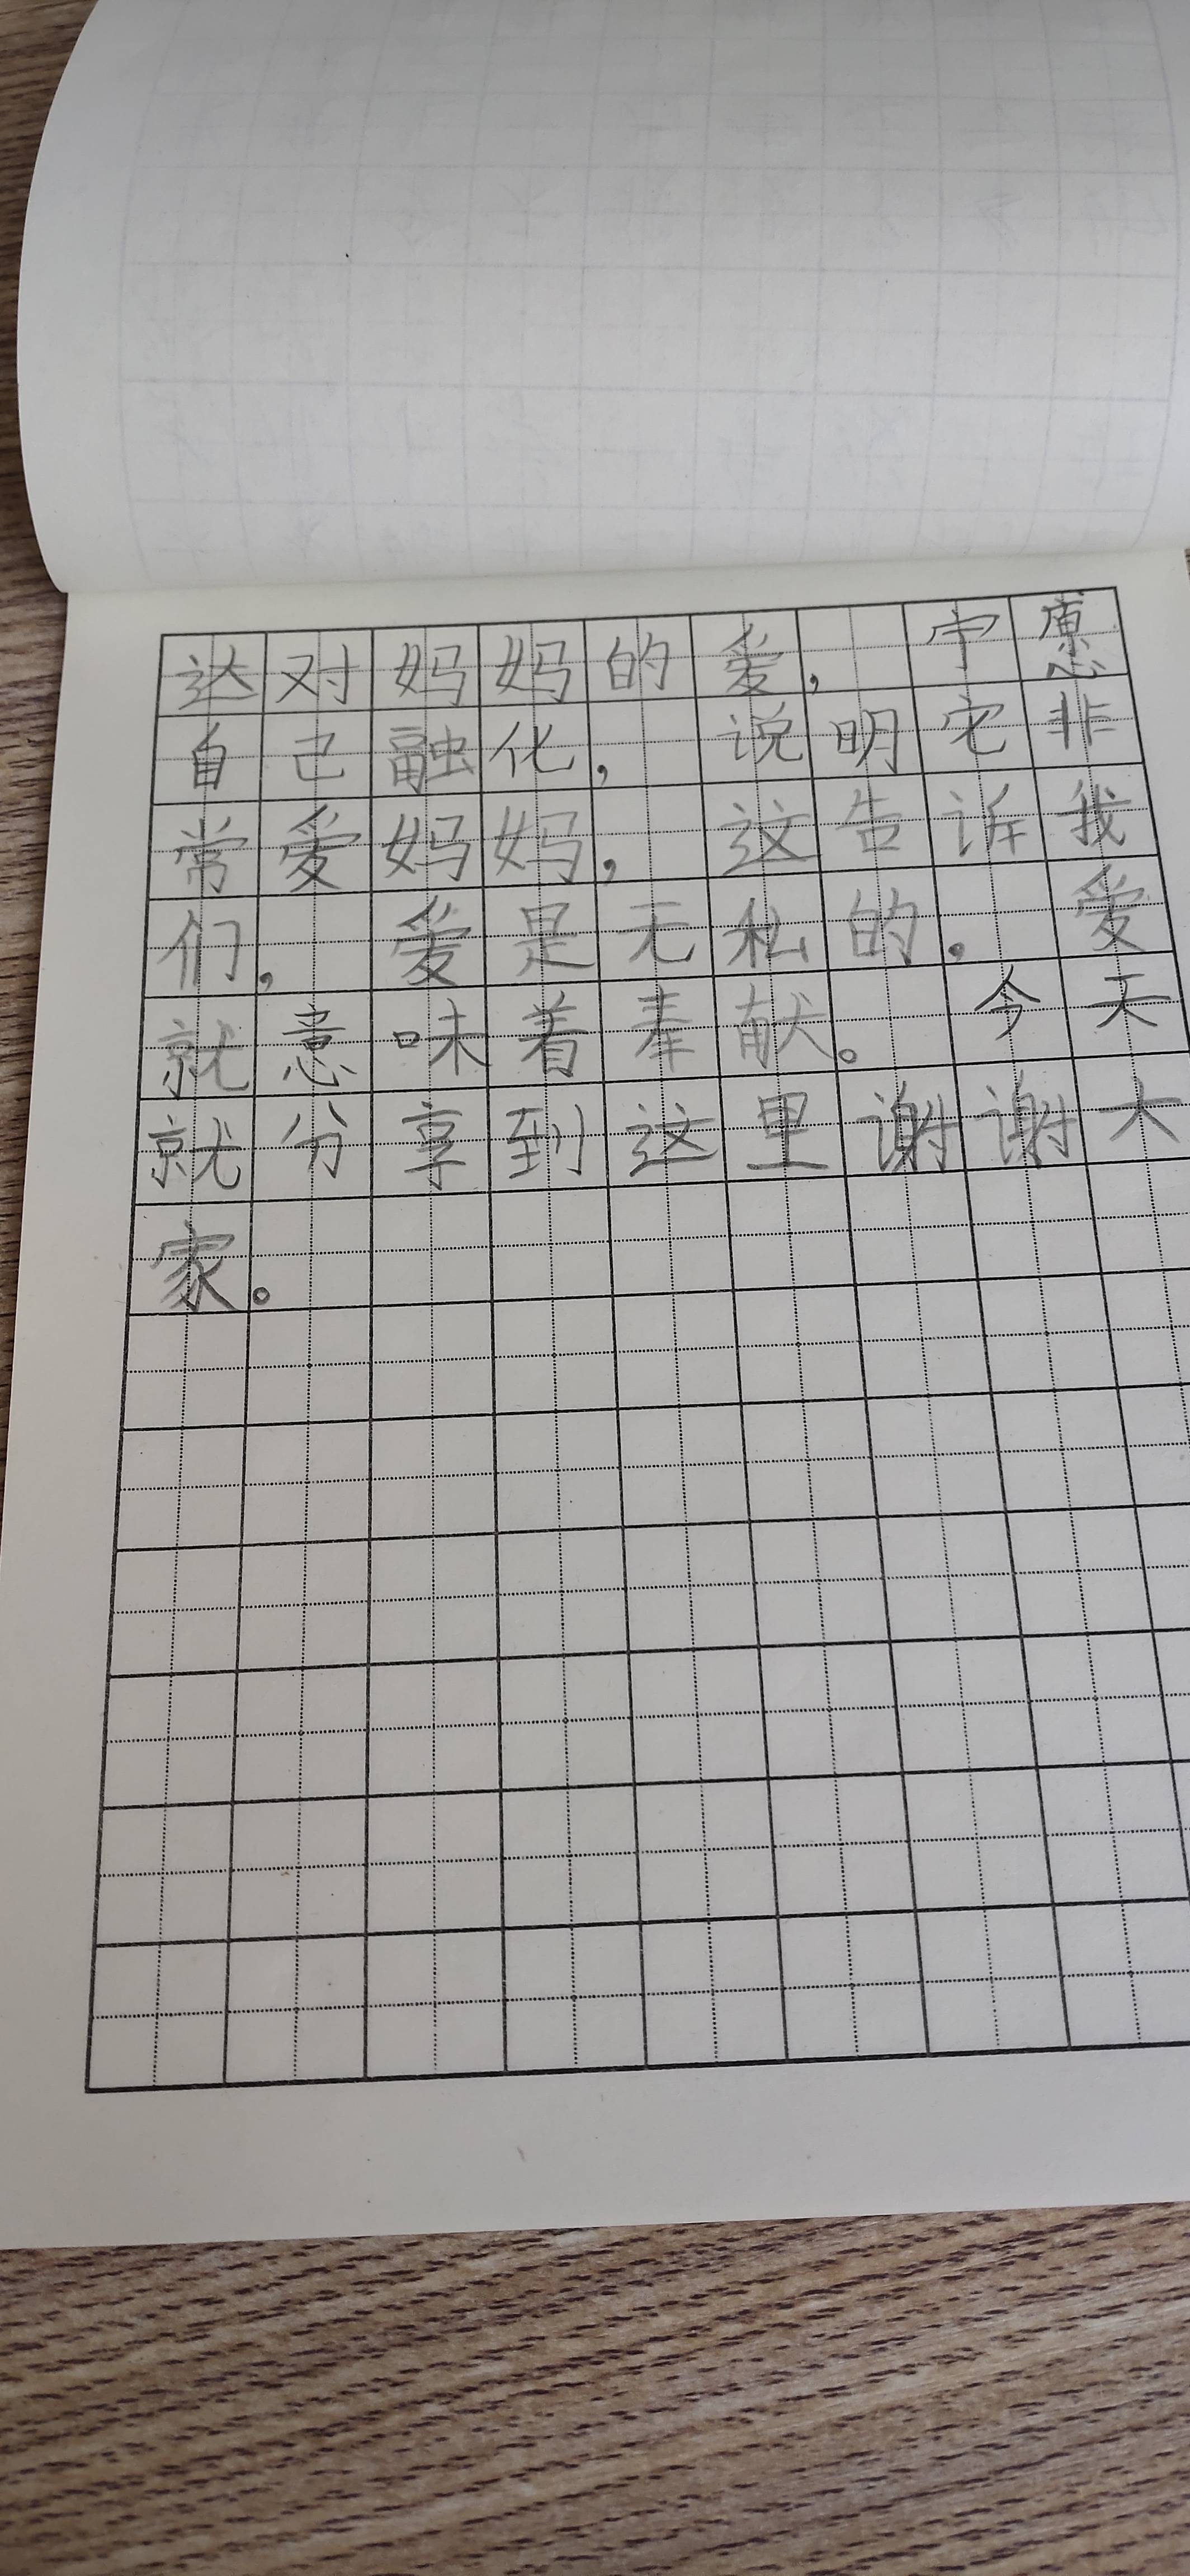 达对妈妈的爱，宁愿
自己融化，说明它非
常爱妈妈，这告诉我
们，爱是无私的。爱
就意味着奉献。今天
就分享到这里谢谢大
家。